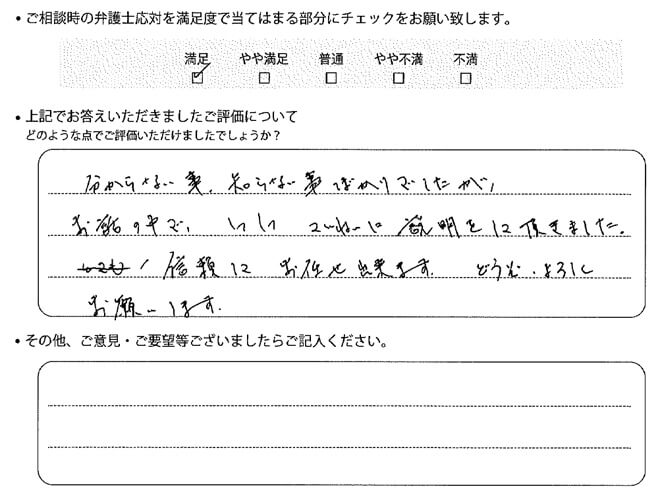 • ご相談時の弁護士応対を満足度で当てはまる部分にチェックをお願い致します。
満足 やや満足 普通 やや不満 不満
• 上記でお答えいただきましたご評価について
どのような点でご評価いただけましたでしょうか？
分からない事、知らない事ばかりでしたが、
お話の中で、 ていねいに 説明をして頂きました。
信頼して お任せ出来ます。 どうぞ、よろしく
お願いします。
• その他、ご意見・ご要望等ございましたらご記入ください。